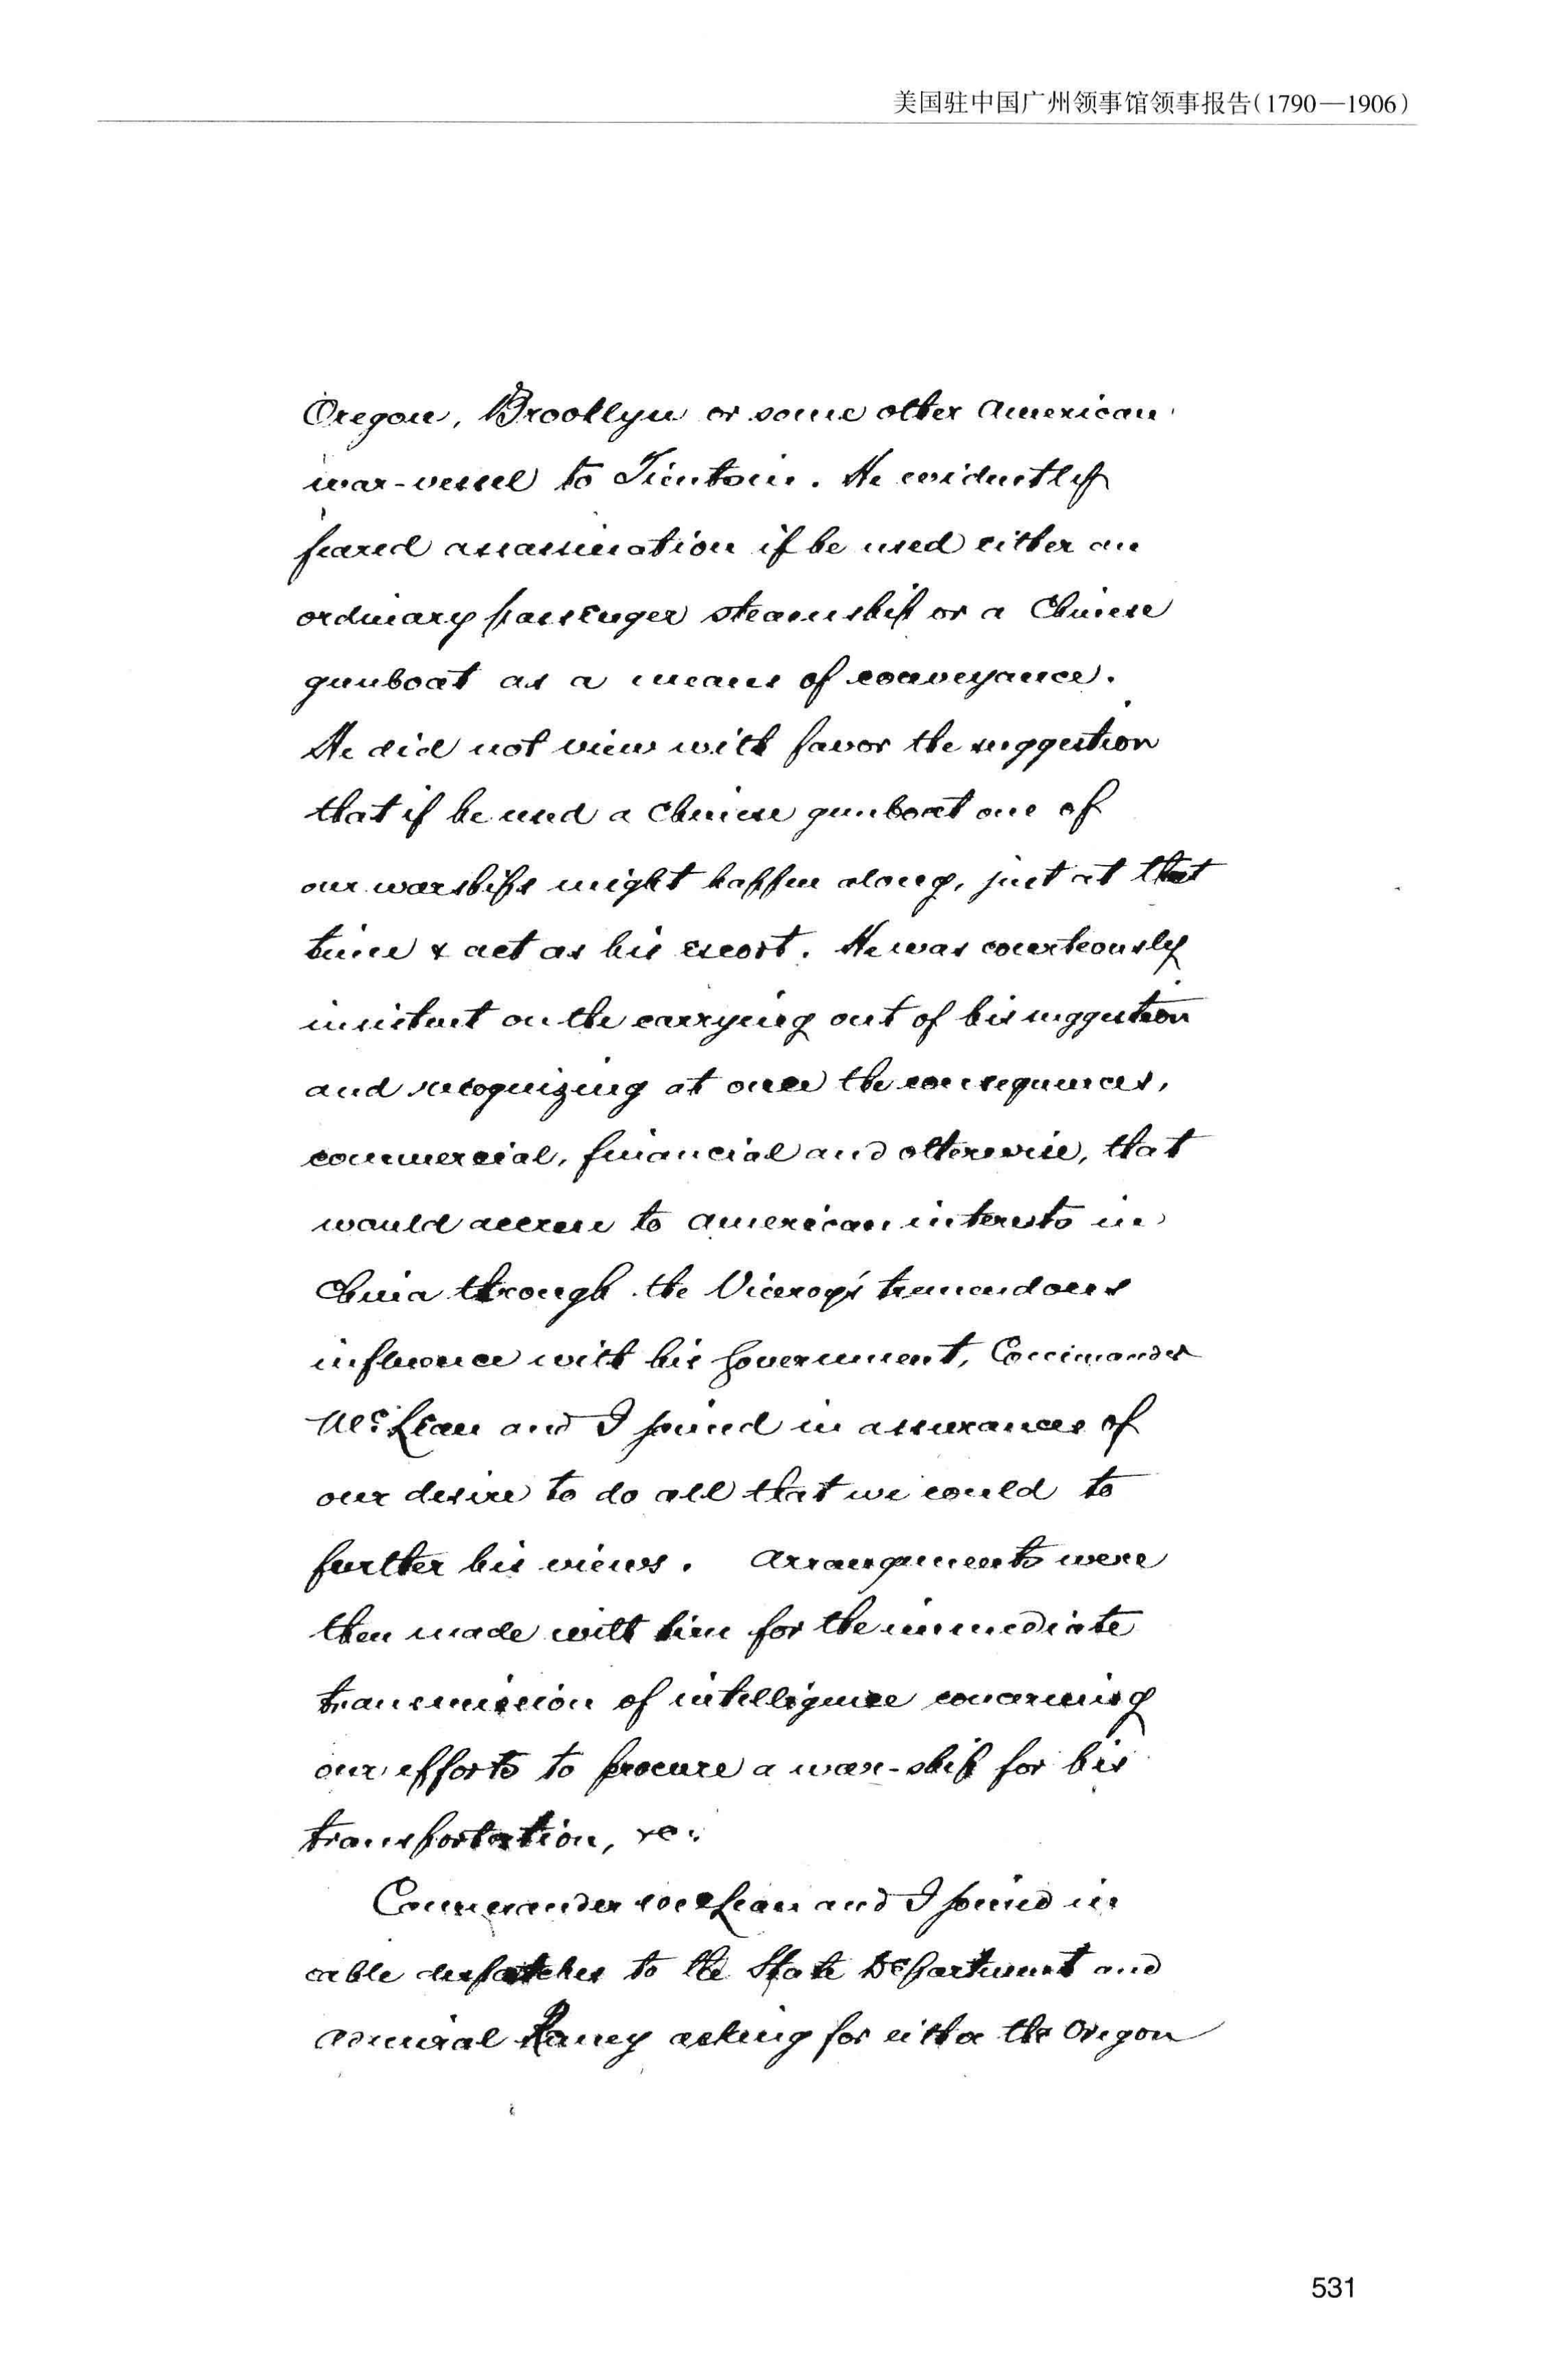 美国驻中国广州领事馆领事报告(1790—1906)
Oregon, Brooklyn or some other American
war-vessel to Tientsin. He evidently
feared assassination if he used either an
ordinary passenger steamship or a Chinese
gunboat as a means of conveyance.
He did not view with favor the suggestion
that if he used a Chinese gunboat one of
our warships might happen along, just at that
time & act as his escort. He was courteously
insistent on the carrying out of his suggestion
and recognizing at once the consequences,
commercial, financial and otherwise, that
would accrue to American interests in
China through the Viceroy's tremendous
influence with his Government, Commander
McLean and I joined in assurances of
our desire to do all that we could to
further his views. Arrangements were
then made with him for the immediate
transmission of intelligence concerning
our efforts to procure a war-ship for his
transportation, &c.
Commander McLean and I joined in
cable despatches to the State Department and
Admiral asking for either the Oregon
531